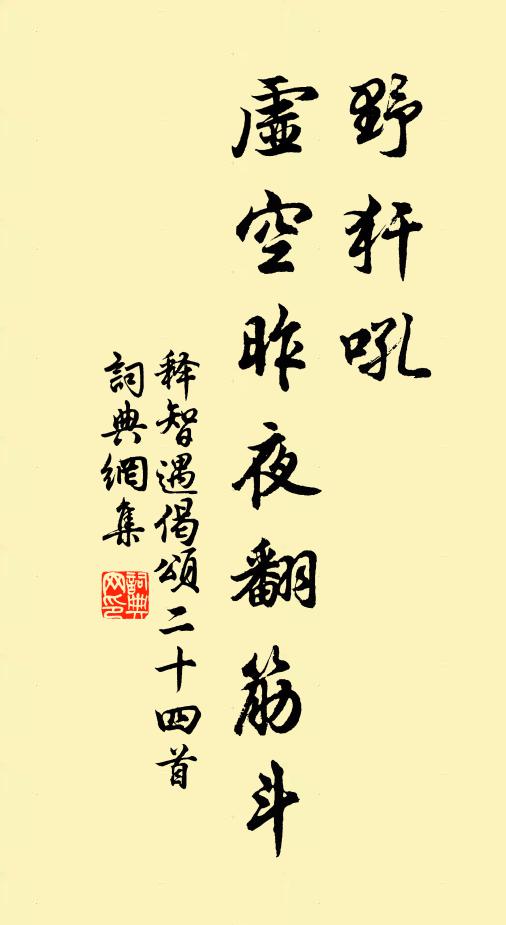 野犴吼
虚空昨夜翻筋斗
释智遇偈頌二十四首
詞典網集
詞典网印